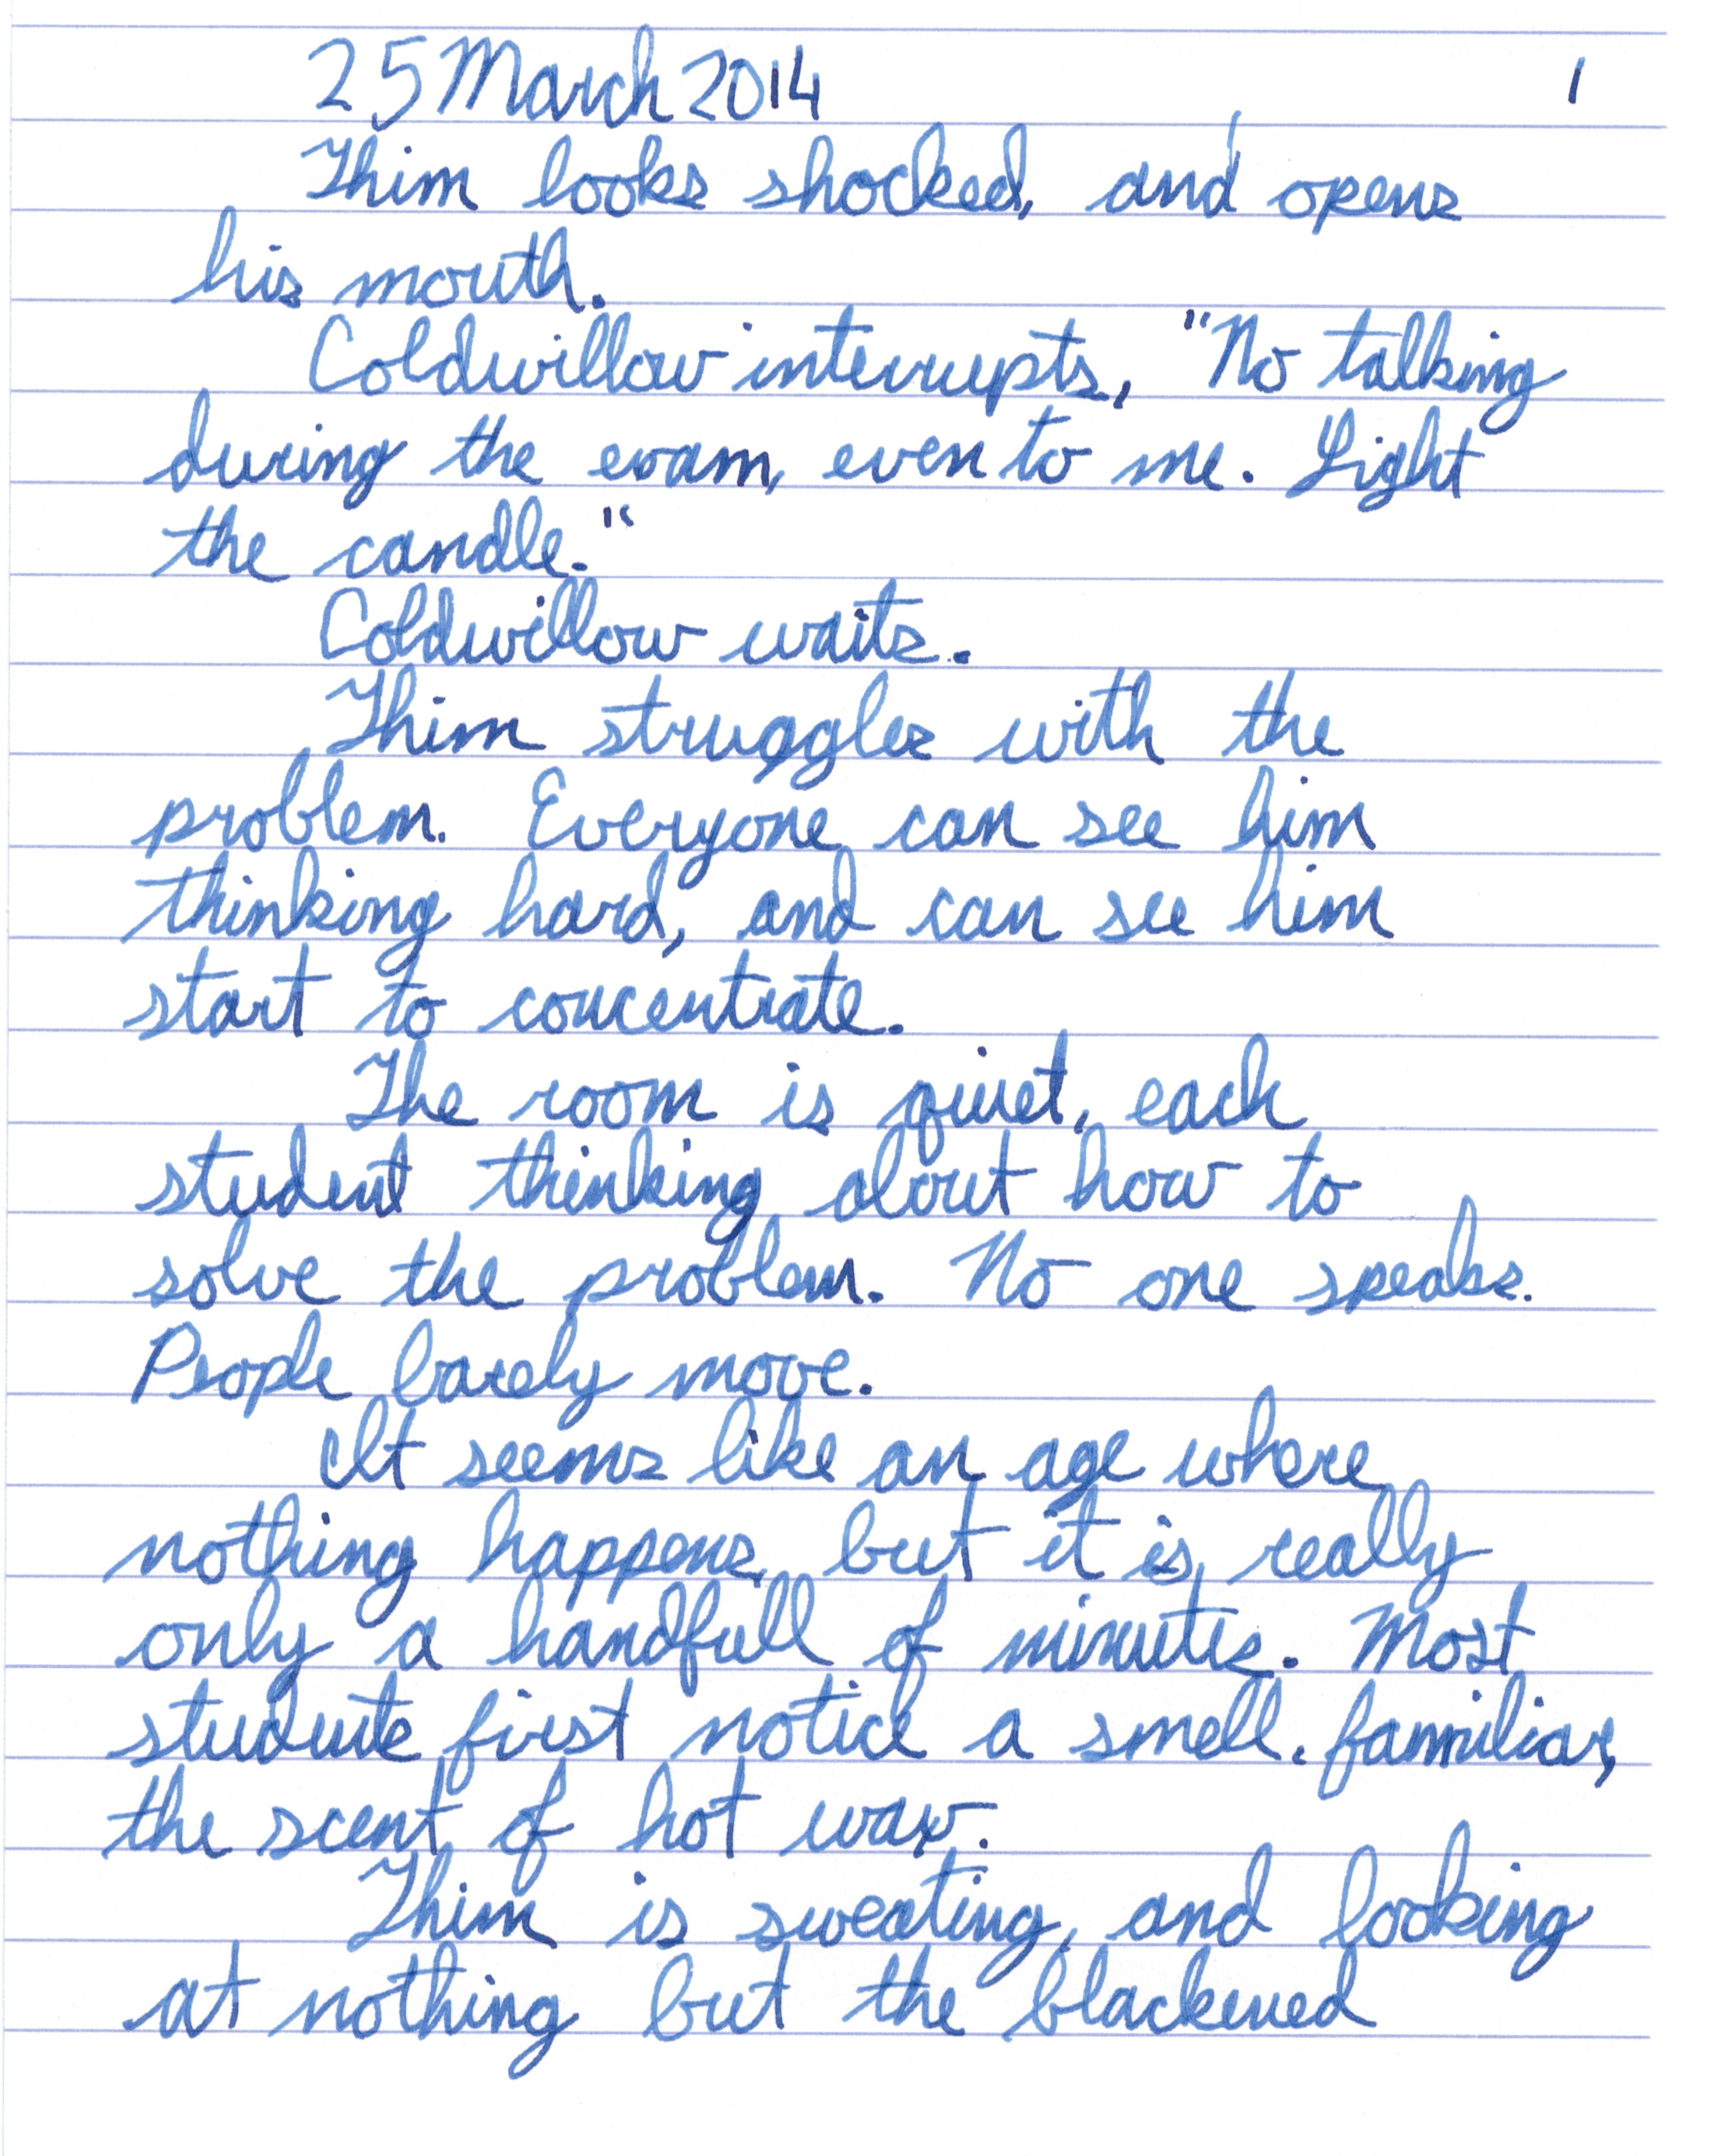 25 March 2014 1
Thim looks shocked, and opens
his mouth.
Coldwillow interrupts, "No talking
during the exam, even to me. Light
the candle."
Coldwillow waits.
Thim struggles with the
problem. Everyone can see him
thinking hard, and can see him
start to concentrate.
The room is quiet, each
student thinking about how to
solve the problem. No one speaks.
People barely move.
It seems like an age where
nothing happens, but it is really
only a handfull of minutes. Most
students first notice a smell. familiar,
the scent of hot wax.
Thim is sweating, and looking
at nothing but the blackened